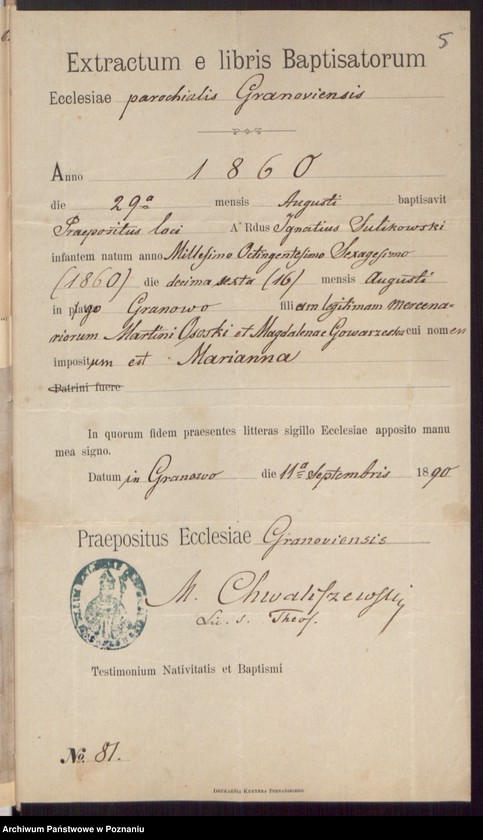 5
Extractum e libris Baptisatorum
Ecclesiae parochialis Granoviensis
Anno 1860
die 29ª mensis Augusti baptisavit
Praepositus loci A Rdus Ignatius Sulikowski
infantem natum anno Millesimo Octingentesimo Sexagesimo
(1860) die decima sexta (16) mensis Augusti
in pago Granowo filiam legitimam mercena-
riorum Martini Ososki et Magdalenae Gowarzeska cui nomen
impositum est Marianna
Patrini fuere
In quorum fidem praesentes litteras sigillo Ecclesiae apposito manu
mea signo.
Datum in Granowo die 11ª Septembris 1890
Praepositus Ecclesiae Granoviensis
M. Chwaliszewski
Lic. S. Theol.
Testimonium Nativitatis et Baptismi
No. 81.
DRUKARNIA KURYERA POZNAŃSKIEGO
Archiwum Państwowe w Poznaniu